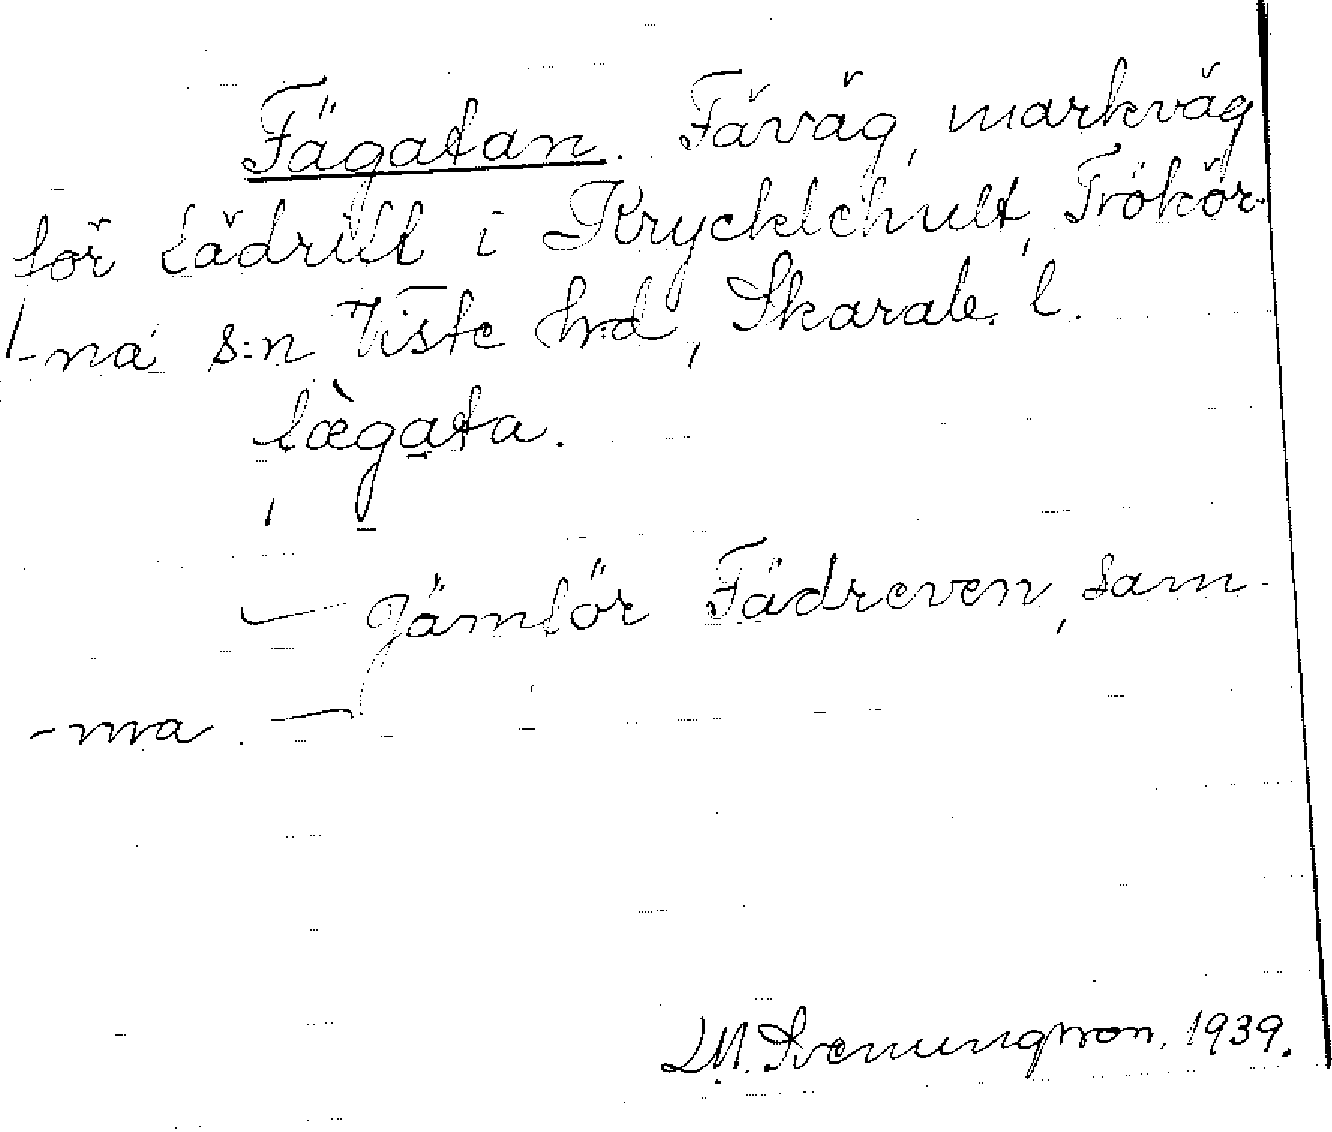 Fägatan. Fäväg, markväg
för fädrift i Krycklehult, Frökör-
-na s:n Viste hrd, Skarab. l.
fæ̀gata.
— Jämför Fädreven, sam-
-ma. —
L M. Svenungsson. 1939.